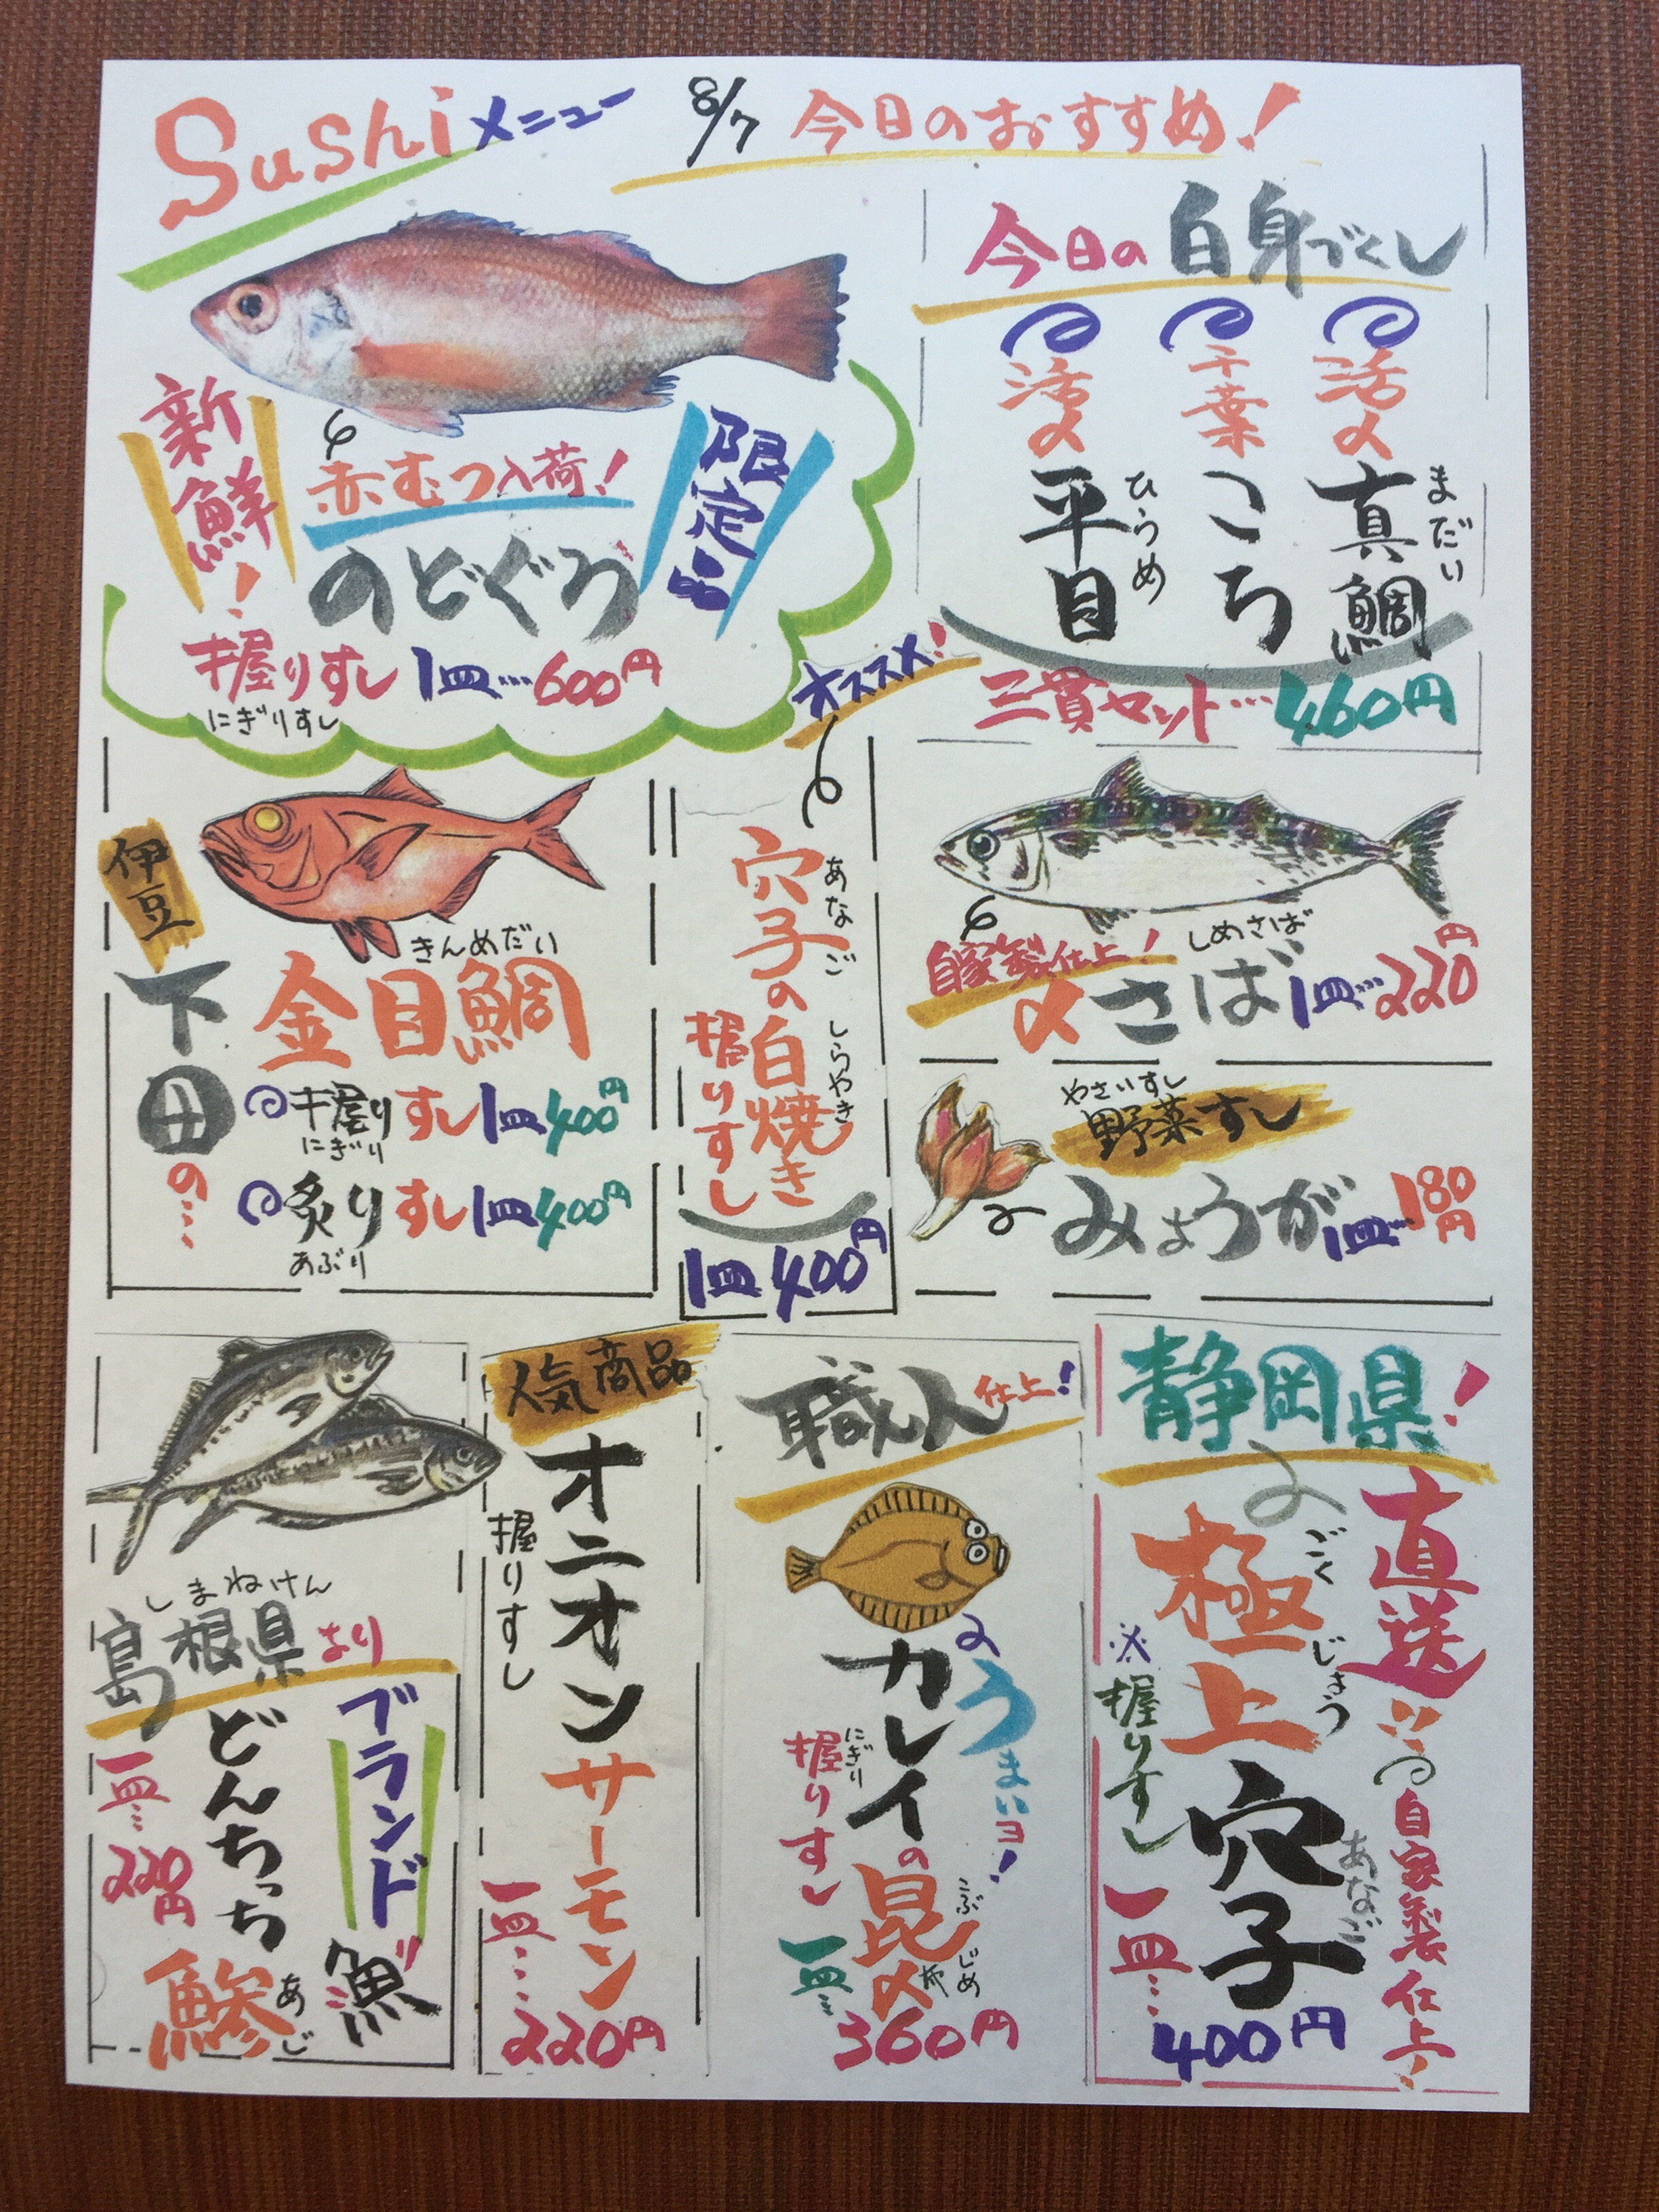 Sushiメニュー
8/7 今日のおすすめ!
新鮮!
赤むつ入荷!
のどぐろ
限定!!
握りすし 1皿…600円
にぎりすし
今日の白身づくし
活〆
平目
ひらめ
千葉
こち
活〆
真鯛
まだい
三貫セット…460円
伊豆
下田の…
きんめだい
金目鯛
握りすし1皿400円
にぎり
炙りすし1皿400円
あぶり
オススメ!
穴子の白焼き
あなご しらやき
握りすし
1皿400円
自家製仕上!
しめさば
〆さば1皿…220円
やさいすし
野菜すし
みょうが1皿…180円
しまねけん
島根県より
ブランド魚!!
どんちっち
鯵
あじ
一皿…
220円
人気商品
オニオンサーモン
握りすし
一皿…
220円
職人仕上!
うまいヨ!
カレイの昆布〆
こぶじめ
握りすし
にぎり
一皿…
360円
静岡県!
直送!!
自家製仕上!
極上
ごくじょう
穴子
あなご
※握りすし
一皿…
400円